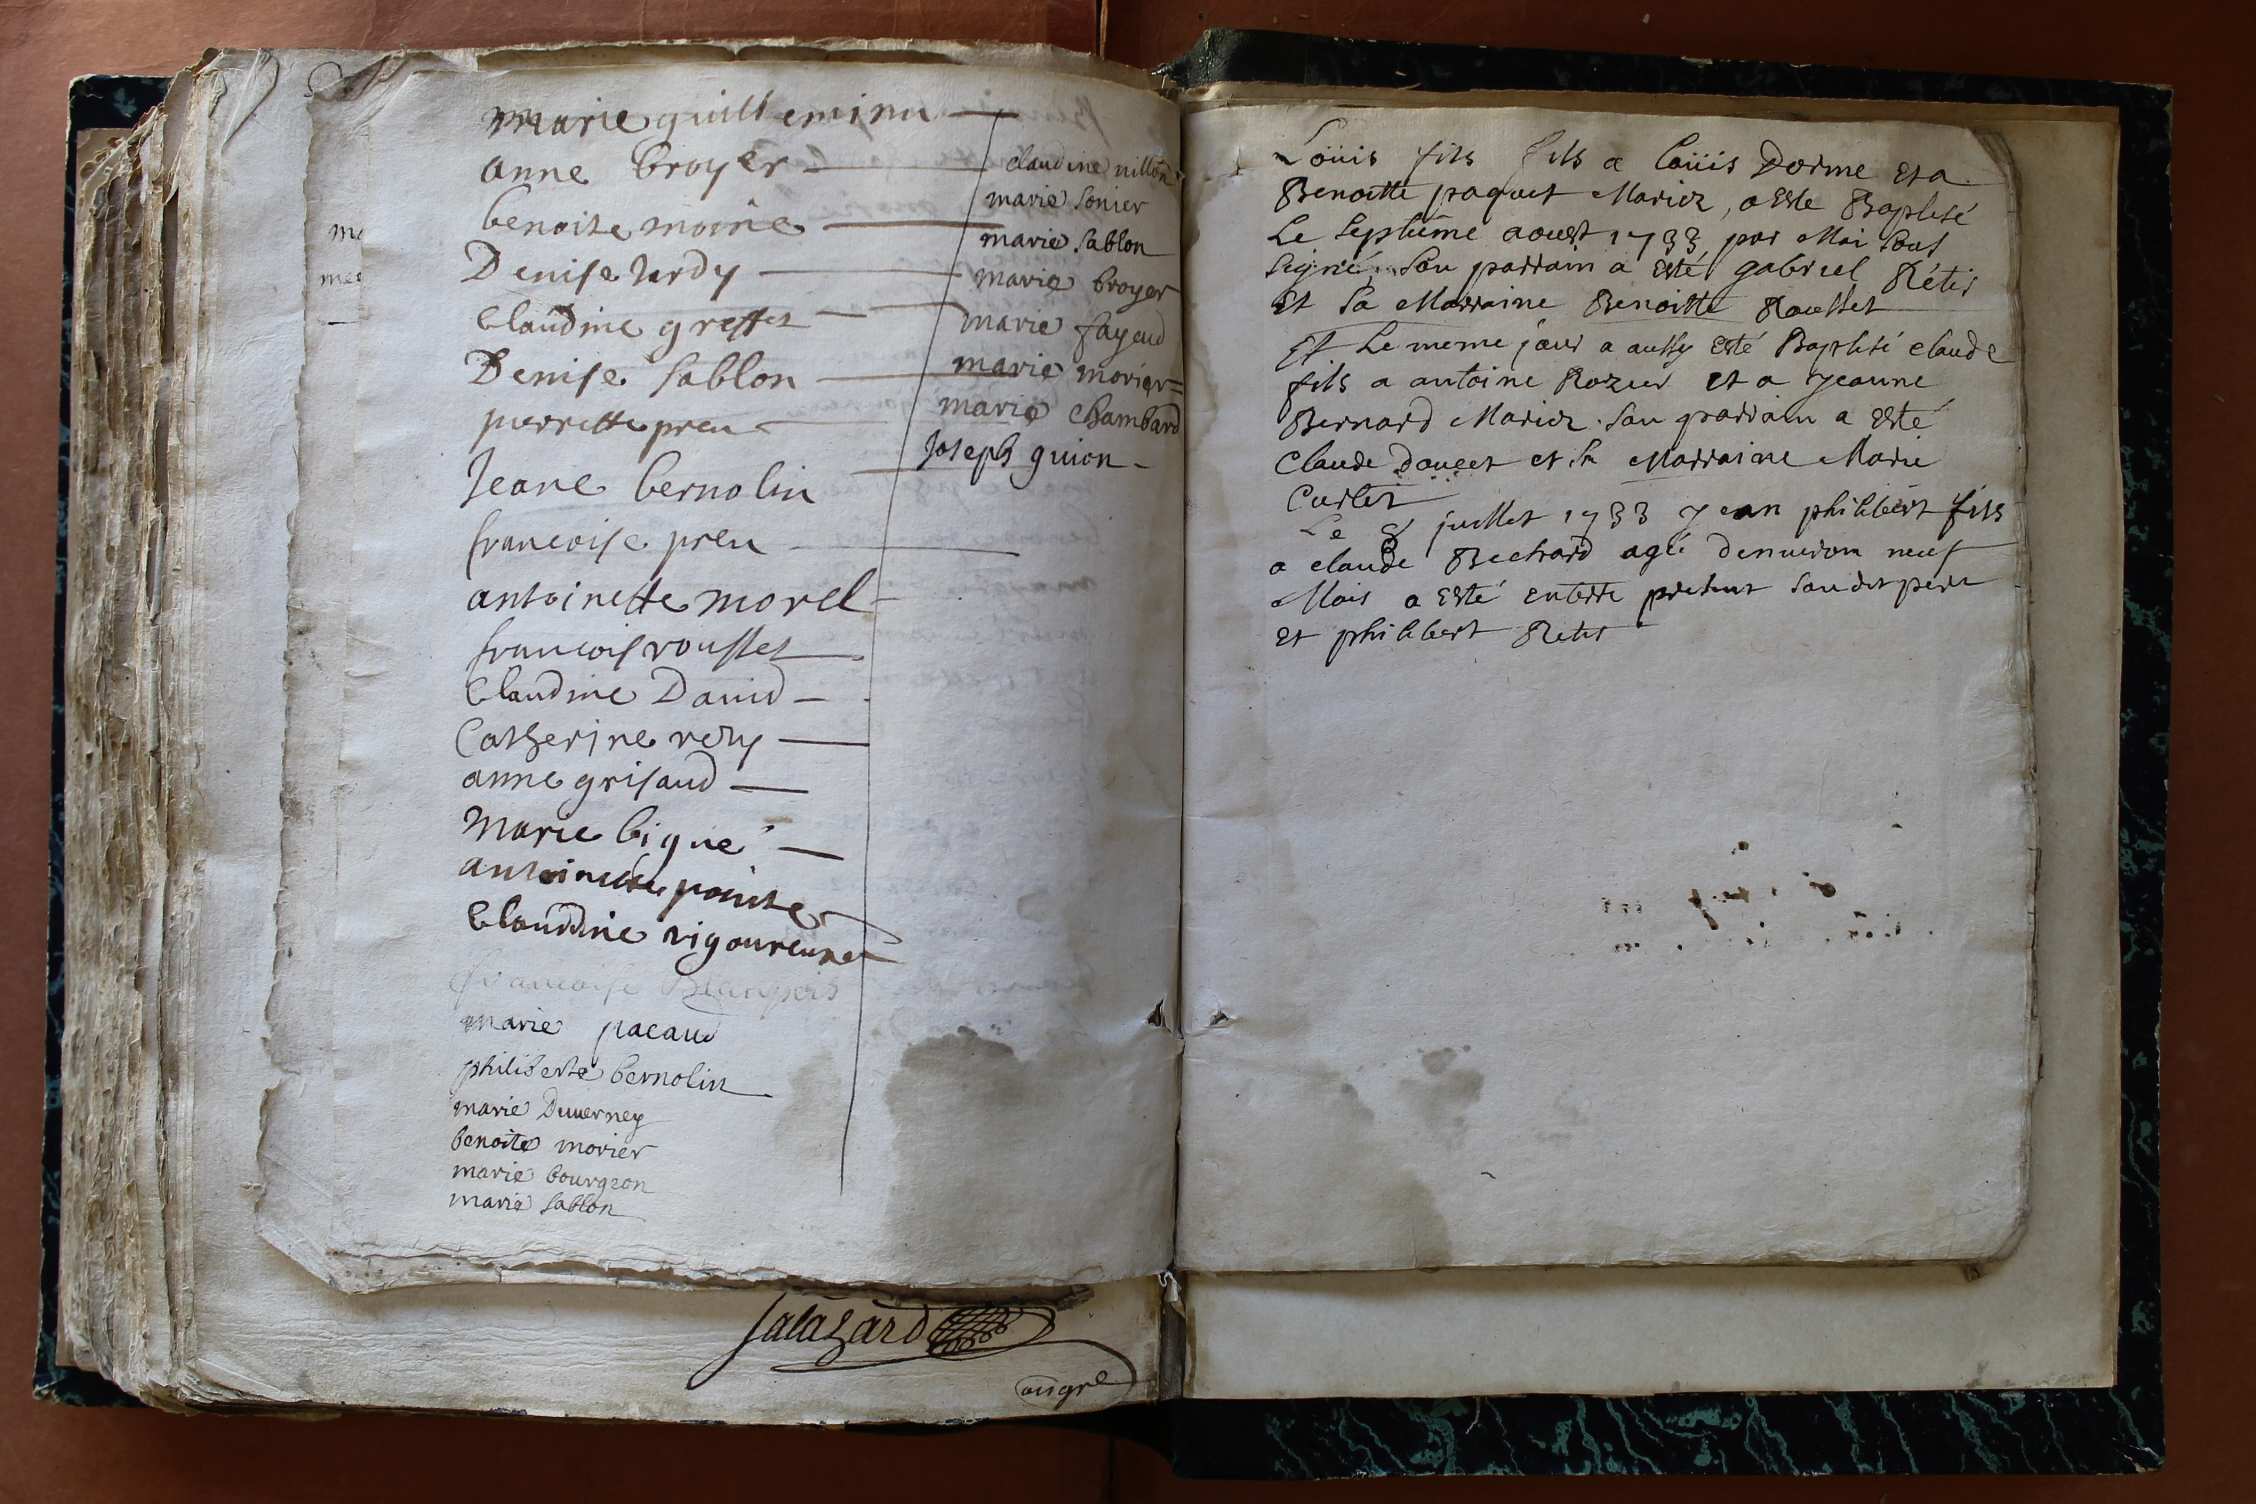 marie guilleminu
anne broyer
benoite moine
Denise tardy
Claudine greffet
Denise Sablon
pierrette preu
Jeane bernolin
francoise preu
antoinette morel
francoise rousset
Claudine Dauid
Catherine rety
anne grisaud
Marie bigue
antoinette pointe
Claudine vigoureuse
francoise
marie pacaud
philiberte bernolin
marie Duuerney
benoite morier
marie bourgeon
marie Sablon
claudine uillon
marie Sonier
marie Sablon
marie broyer
marie fayeud
marie morier
marie Chambard
Joseph guion
ma
mar
Salazard
congre
Loüis fils fils a Loüis Dorme et a
Benoitte paquet Mariez, a Esté Baptisé
Le Septiéme aoust 1733 par Moi Sous
Signé, Son parrain a Esté gabriel Rétis
et Sa Marraine Benoitte Rousset
Et Le meme jour a aussy Esté Baptisé claude
fils a antoine Rozier et a Jeanne
Bernard Mariez. Son parrain a Esté
Claude Doucet et Sa Marraine Marie
Cortet
Le 8 juillet 1733 Jean philibert fils
a claude Bechard agé denuiron neuf
Mois a Esté enterré present Son dit pere
et philibert Retis